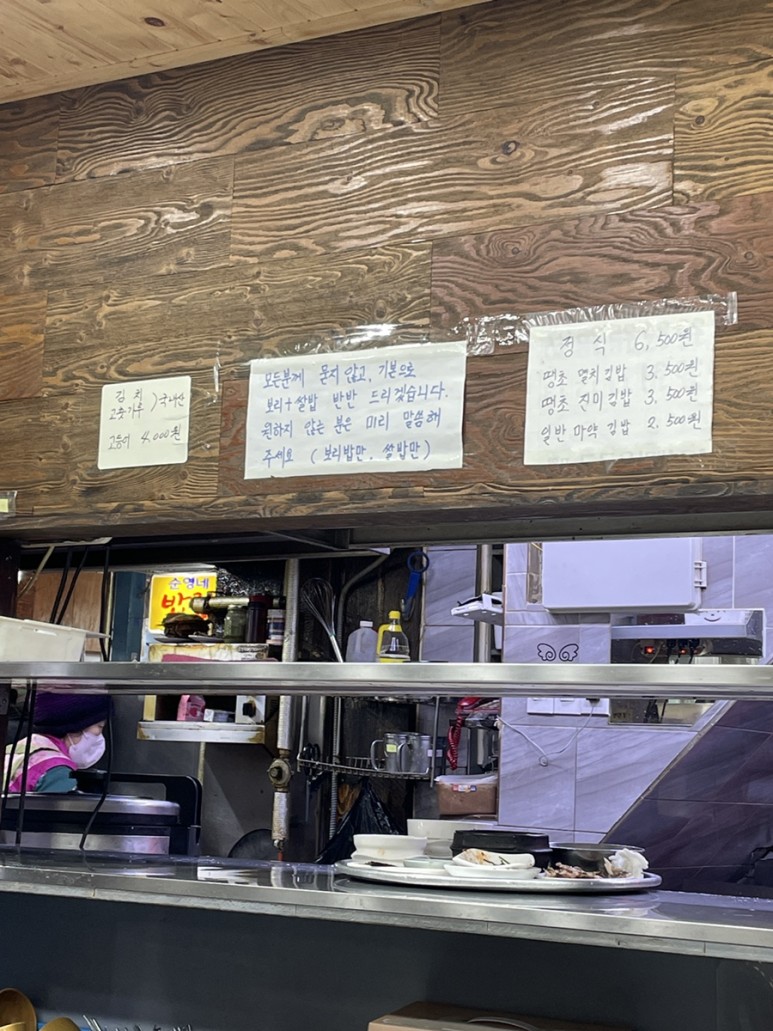 김치 ) 국내산
고춧가루
고등어 4,000원
모든분께 묻지 않고, 기본으로
보리+쌀밥 반반 드리겠습니다.
원하지 않는 분은 미리 말씀해
주세요 (보리밥만, 쌀밥만)
정식 6,500원
땡초 멸치김밥 3,500원
땡초 진미김밥 3,500원
일반 마약 김밥 2,500원
순영네